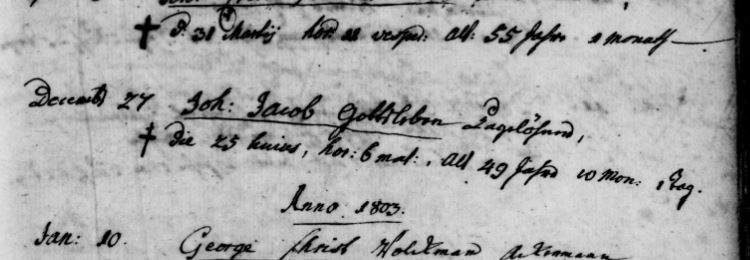 † d. 31 Martij hor: 11 vesp: alt: 55 Jahr 1 Monath
Decembr 27 Joh: Jacob Gottsleben
† die 25 huius, hor: 6 mat:, alt 49 Jahr 10 Mon: 1 Tag.
Anno 1803.
Jan: 10. George Christ Ackermann